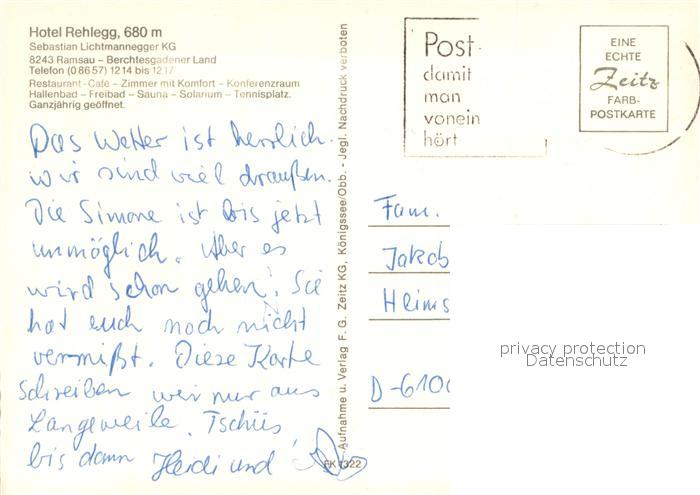 Hotel Rehlegg, 680 m
Sebastian Lichtmannegger KG
8243 Ramsau – Berchtesgadener Land
Telefon (0 86 57) 12 14 bis 12 17
Restaurant-Café – Zimmer mit Komfort – Konferenzraum
Hallenbad – Freibad – Sauna – Solarium – Tennisplatz.
Ganzjährig geöffnet.
Das Wetter ist herrlich.
Wir sind viel draußen.
Die Simone ist bis jetzt
unmöglich. Aber es
wird schon gehen! Sie
hat euch noch nicht
vermißt. Diese Karte
schreiben wir nur aus
Langeweile. Tschüs
bis dann Heidi und
Aufnahme u. Verlag F. G. Zeitz KG, Königssee/Obb. - Jegl. Nachdruck verboten
FK 1322
Post-
damit
man
vonein
hört
EINE
ECHTE
Zeitz
FARB-
POSTKARTE
Fam.
Jakob
Heims
D-610
privacy protection
Datenschutz